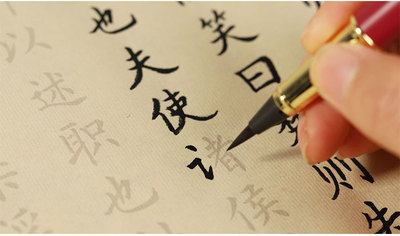 笑曰则失
也夫使诸侯
以述职也